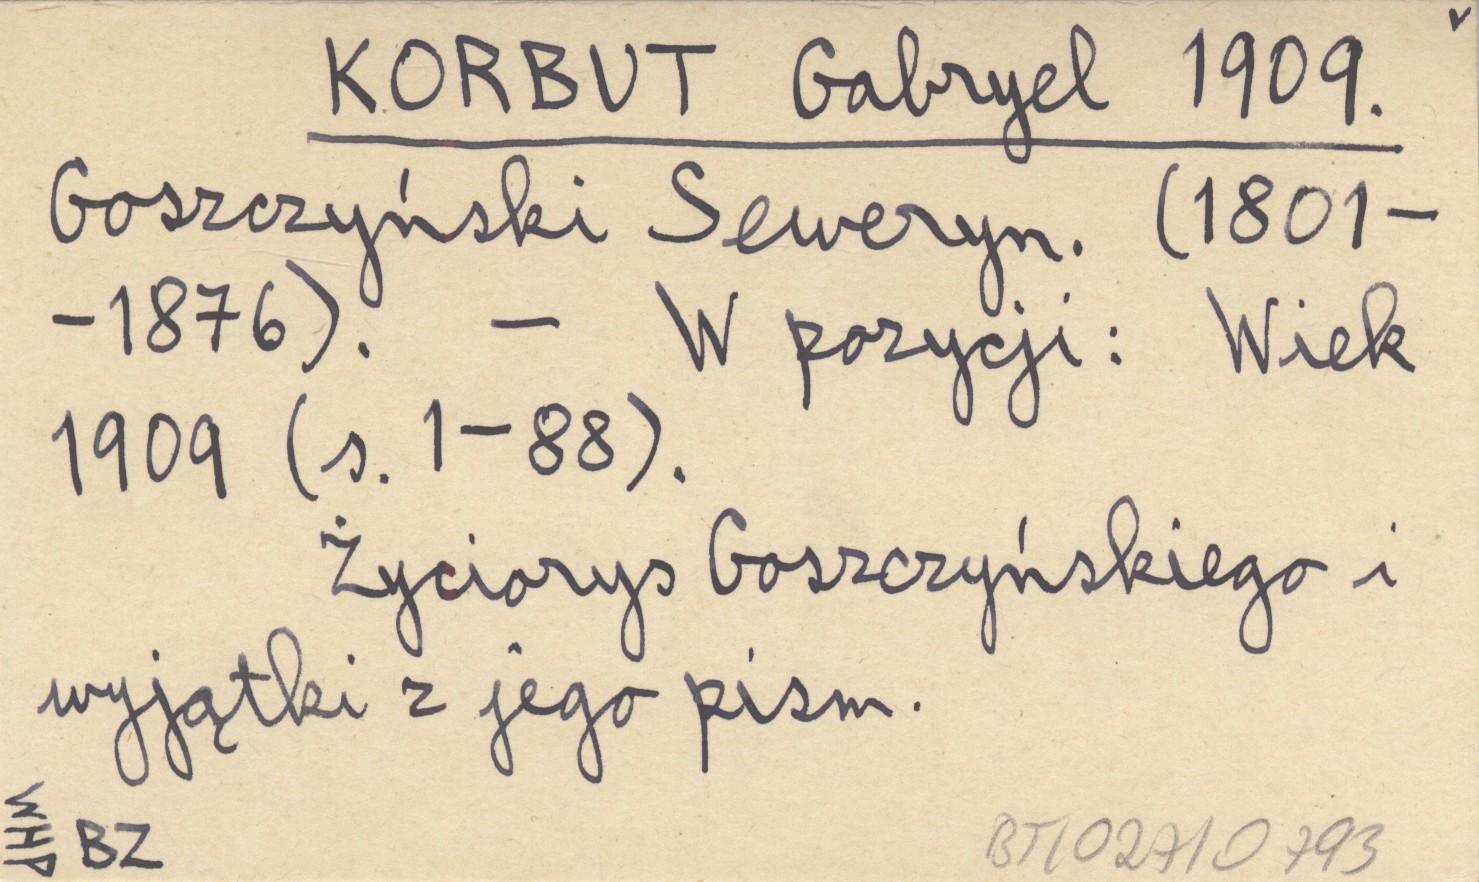 KORBUT Gabryel 1909.
Goszczyński Seweryn. (1801-
-1876). - W pozycji: Wiek
1909 (s. 1-88).
Życiorys Goszczyńskiego i
wyjątki z jego pism.
WHP BZ